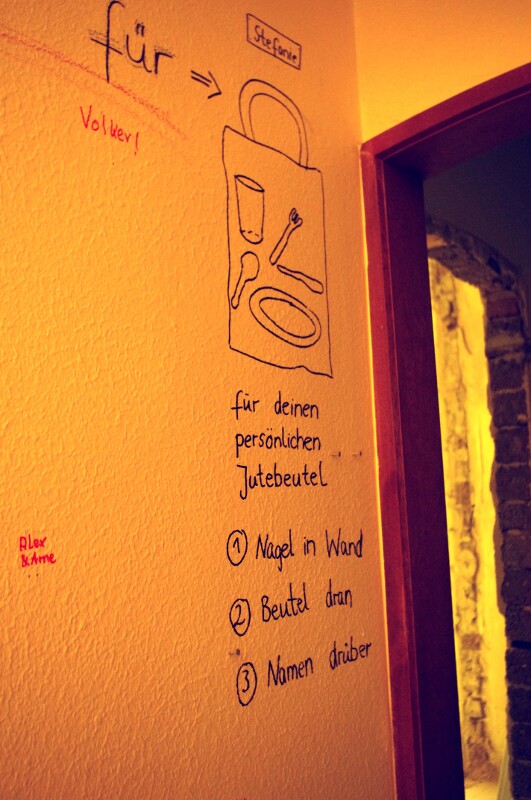 für ⇒
Stefanie
Volker!
für deinen
persönlichen
Jutebeutel
① Nagel in Wand
② Beutel dran
③ Namen drüber
Alex
& Arne